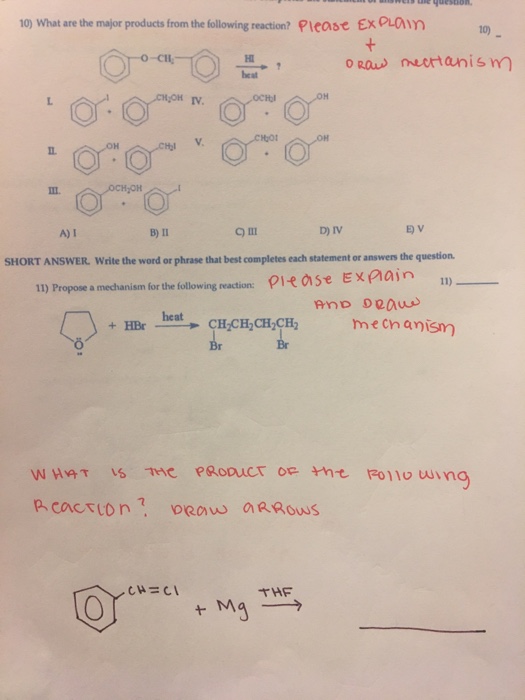 10) What are the major products from the following reaction? Please Explain 10)
+
Draw mechanism
O-CH₂ HI heat ?
I. I CH₂OH IV. OCH₂I OH
II. OH CH₂I V. CH₂OI OH
III. OCH₂OH I
A) I B) II C) III D) IV E) V
SHORT ANSWER. Write the word or phrase that best completes each statement or answers the question.
11) Propose a mechanism for the following reaction: Please Explain 11)
And Draw
mechanism
O + HBr heat CH₂CH₂CH₂CH₂
Br Br
WHAT IS THE PRODUCT OF the Following
Reaction? DRAW ARROWS
CH=Cl + Mg THF